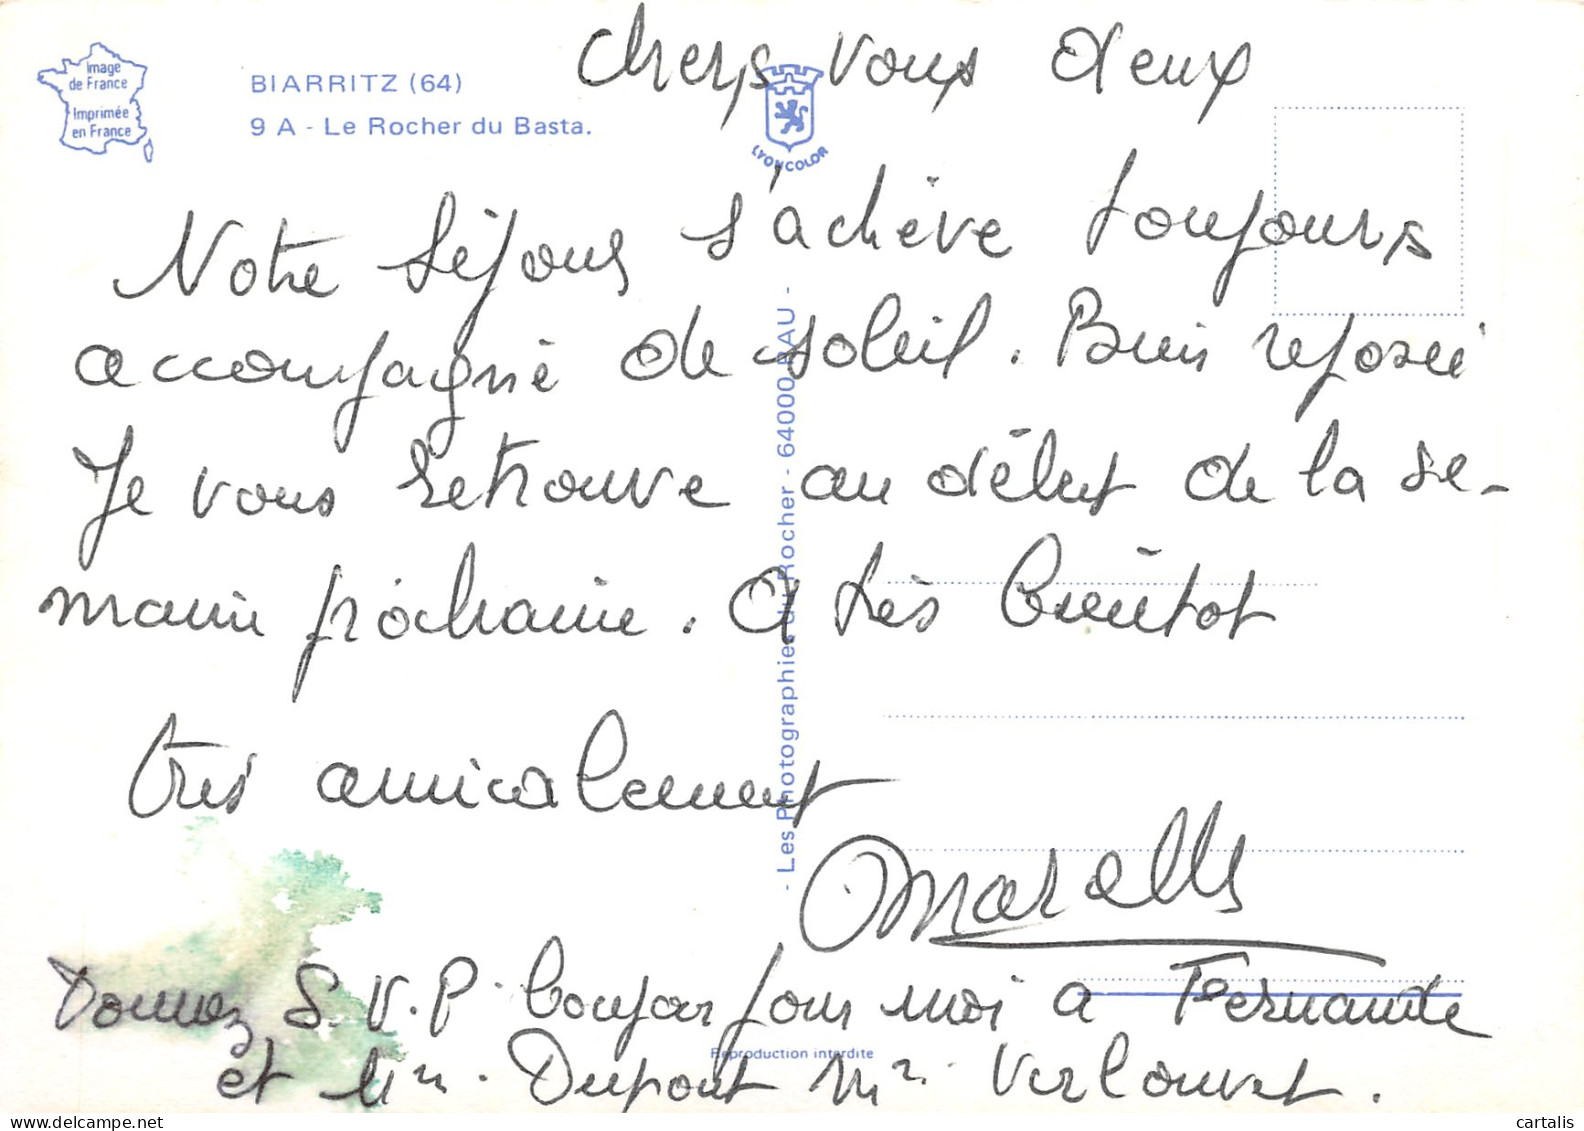 Image
de France
Imprimée
en France
BIARRITZ (64)
9 A - Le Rocher du Basta.
LYONCOLOR
Chers vous deux
Notre séjour s'achève toujours
accompagné de soleil. Bien reposé
Je vous retrouve au début de la se-
maine prochaine. A très bientôt
très amicalement
Donnez S.V.P. bonjour pour moi à Fernande
et Mm. Dupont Mr. Verlouvet.
- Les Photographies du Rocher - 64000 PAU -
Reproduction interdite
cartalis